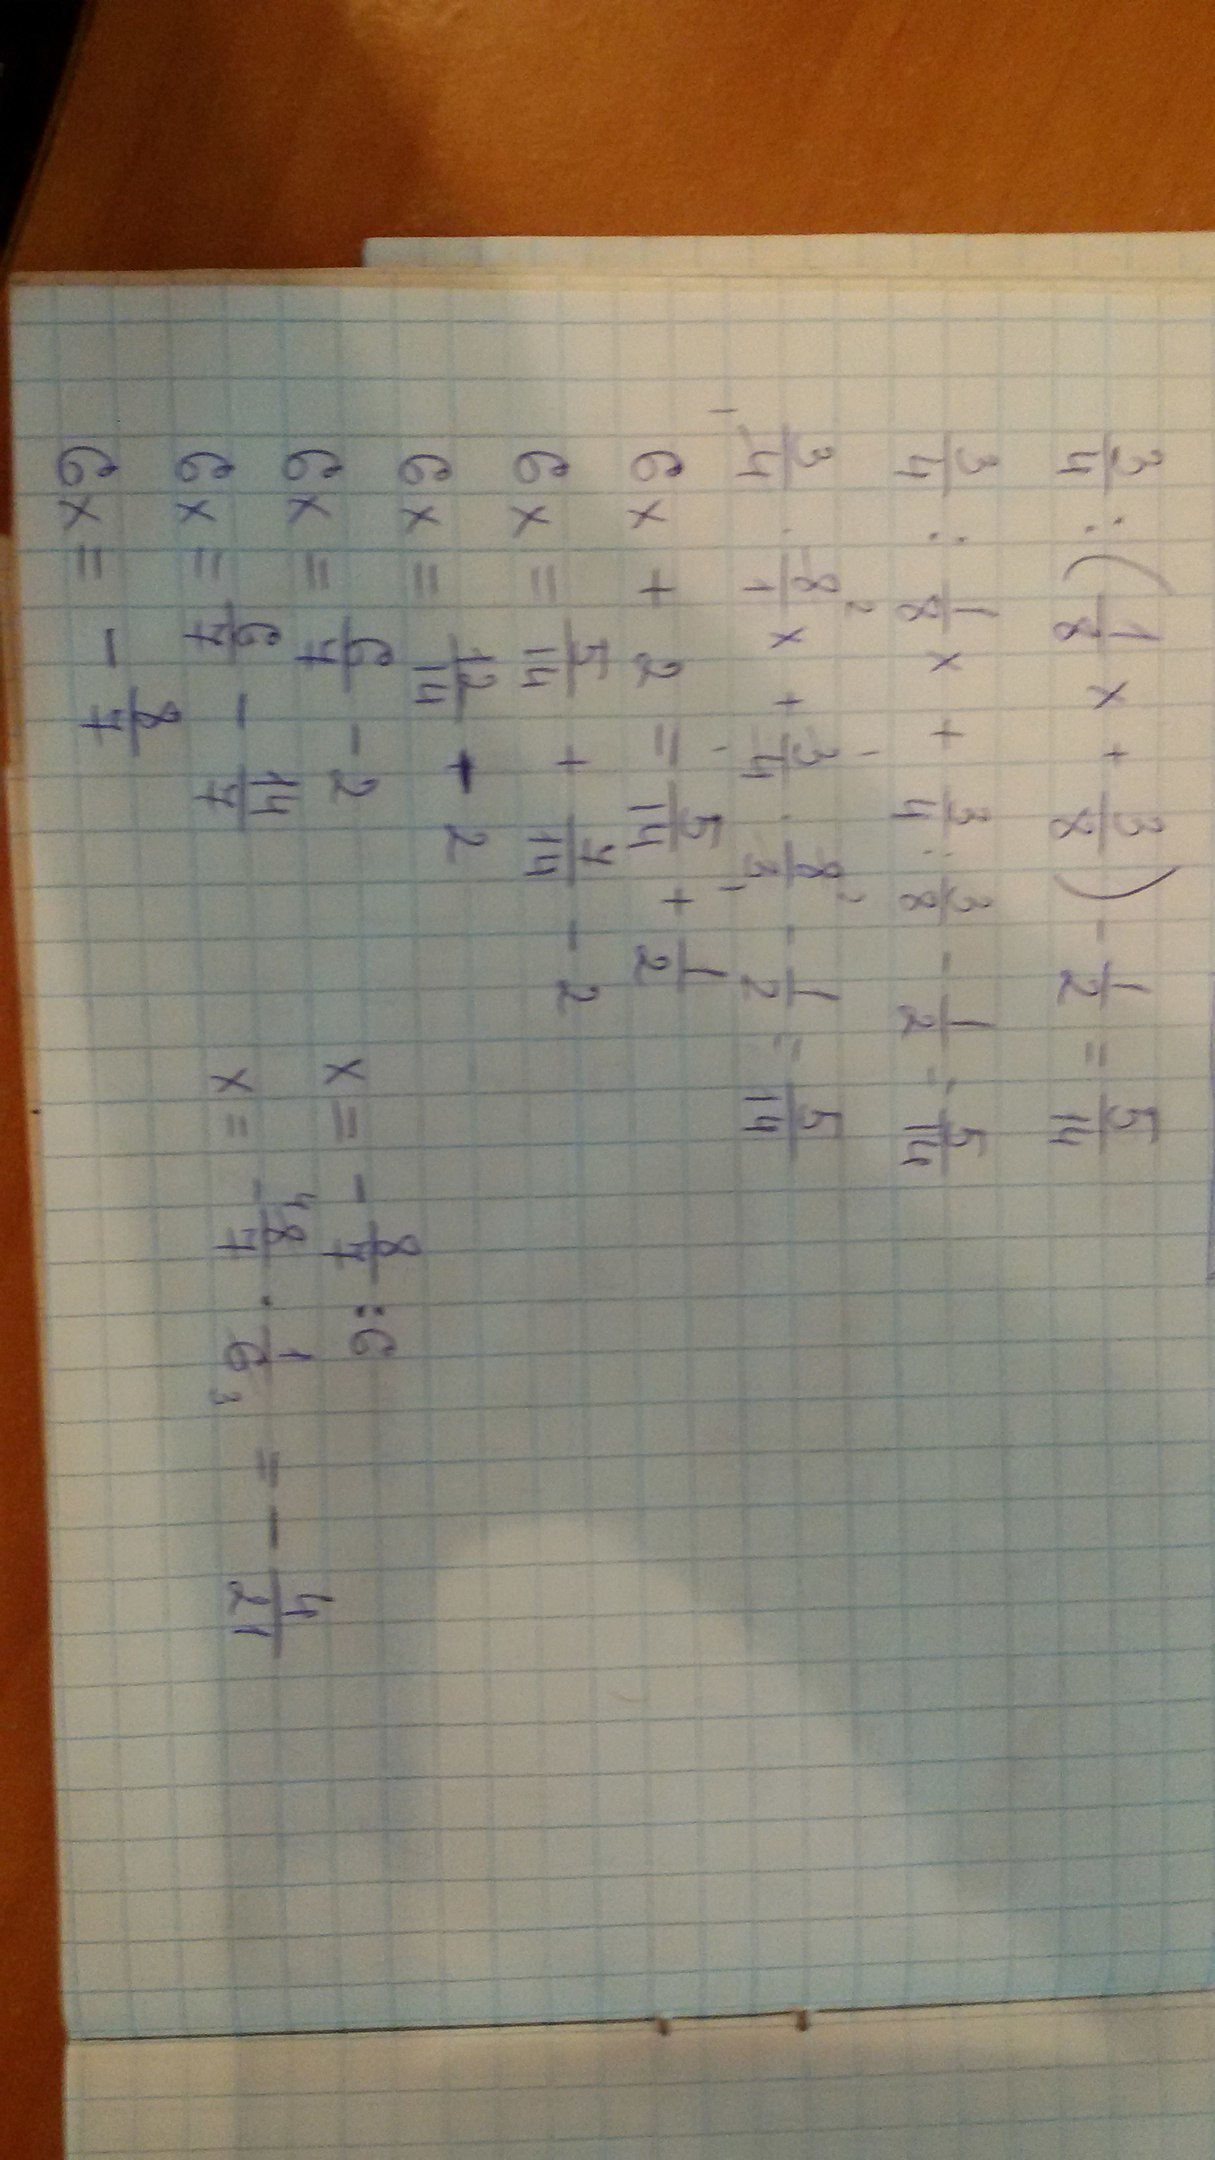 3/4 : (1/8 x + 3/8) - 1/2 = 5/14
3/4 : 1/8 x + 3/4 : 3/8 - 1/2 = 5/14
3/4 · 8/1 x + 3/4 · 8/3 - 1/2 = 5/14
6x + 2 = 5/14 + 1/2
6x = 5/14 + 7/14 - 2
6x = 12/14 + 2
6x = 6/7 - 2
6x = 6/7 - 14/7
6x = - 8/7
x = - 8/7 : 6
x = - 8/7 · 1/6 = - 4/21